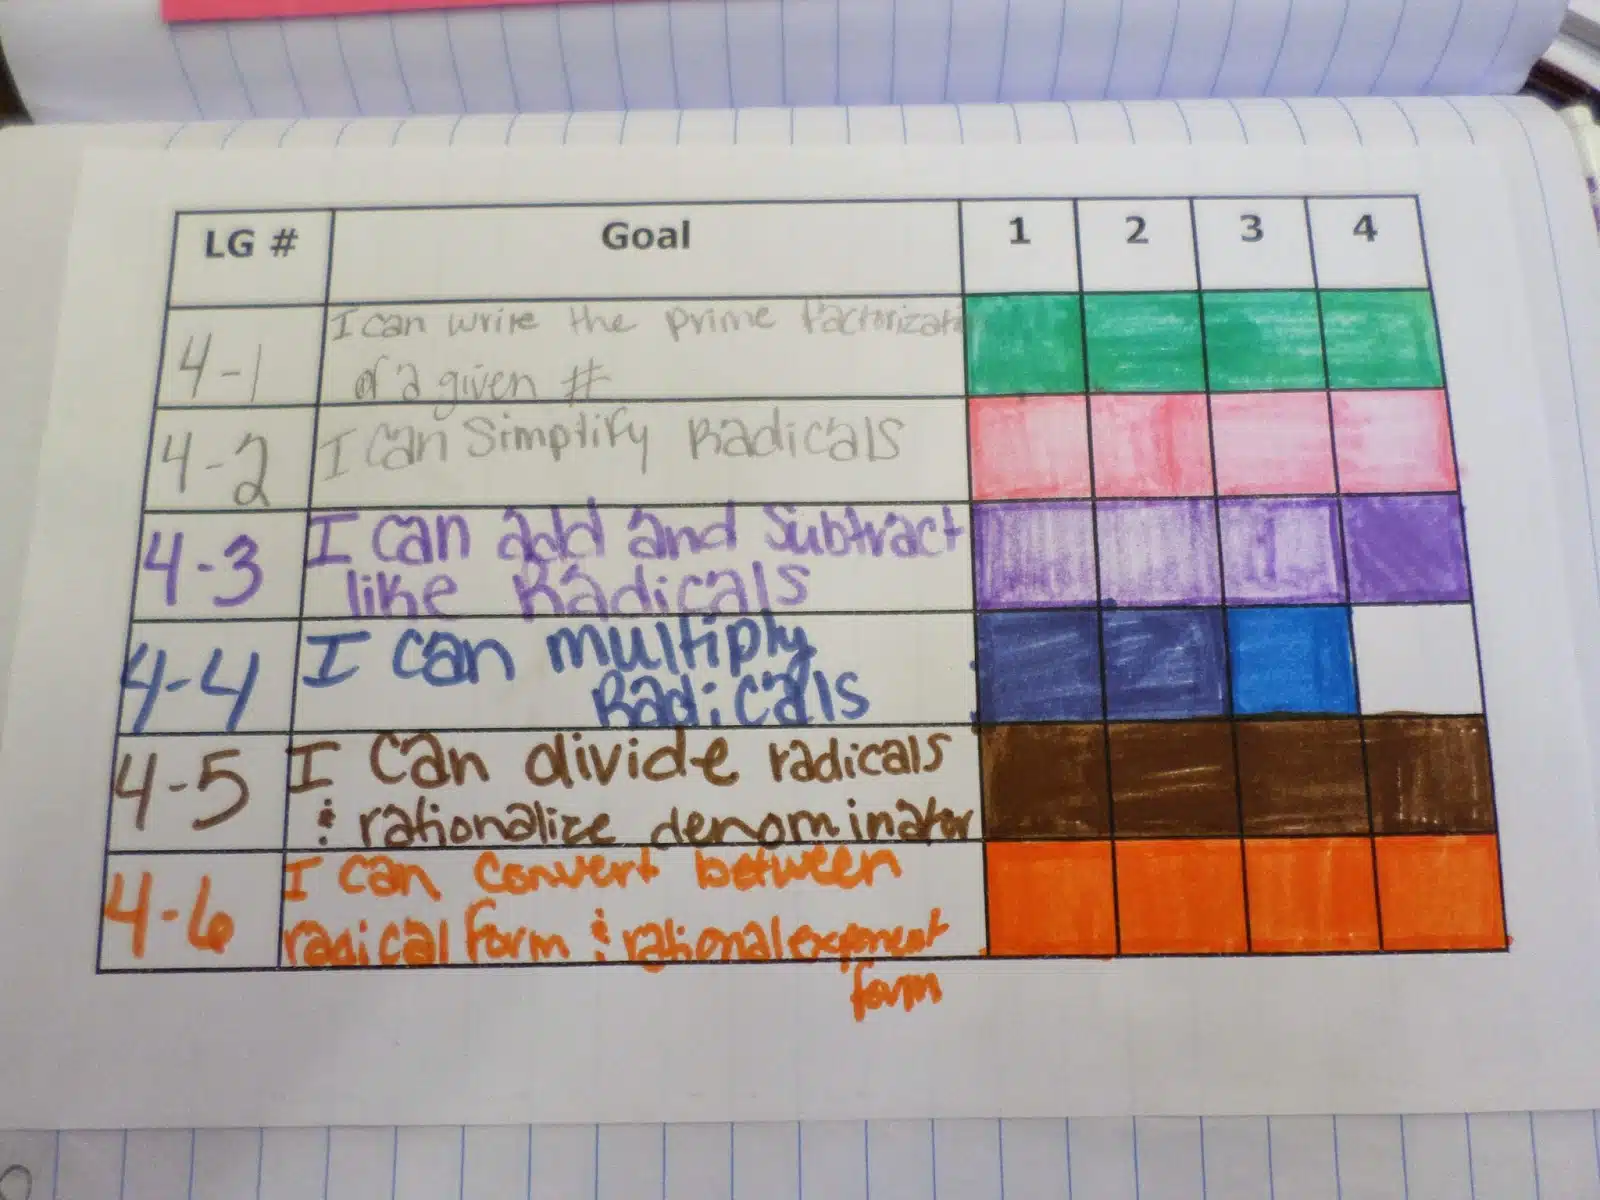 LG # Goal 1 2 3 4
4-1 I can write the prime factorizatio
of a given #
4-2 I can Simplify Radicals
4-3 I can add and Subtract
like Radicals
4-4 I can multiply
Radicals
4-5 I can divide radicals
& rationalize denominator
4-6 I can convert between
radical form & rational exponent
form